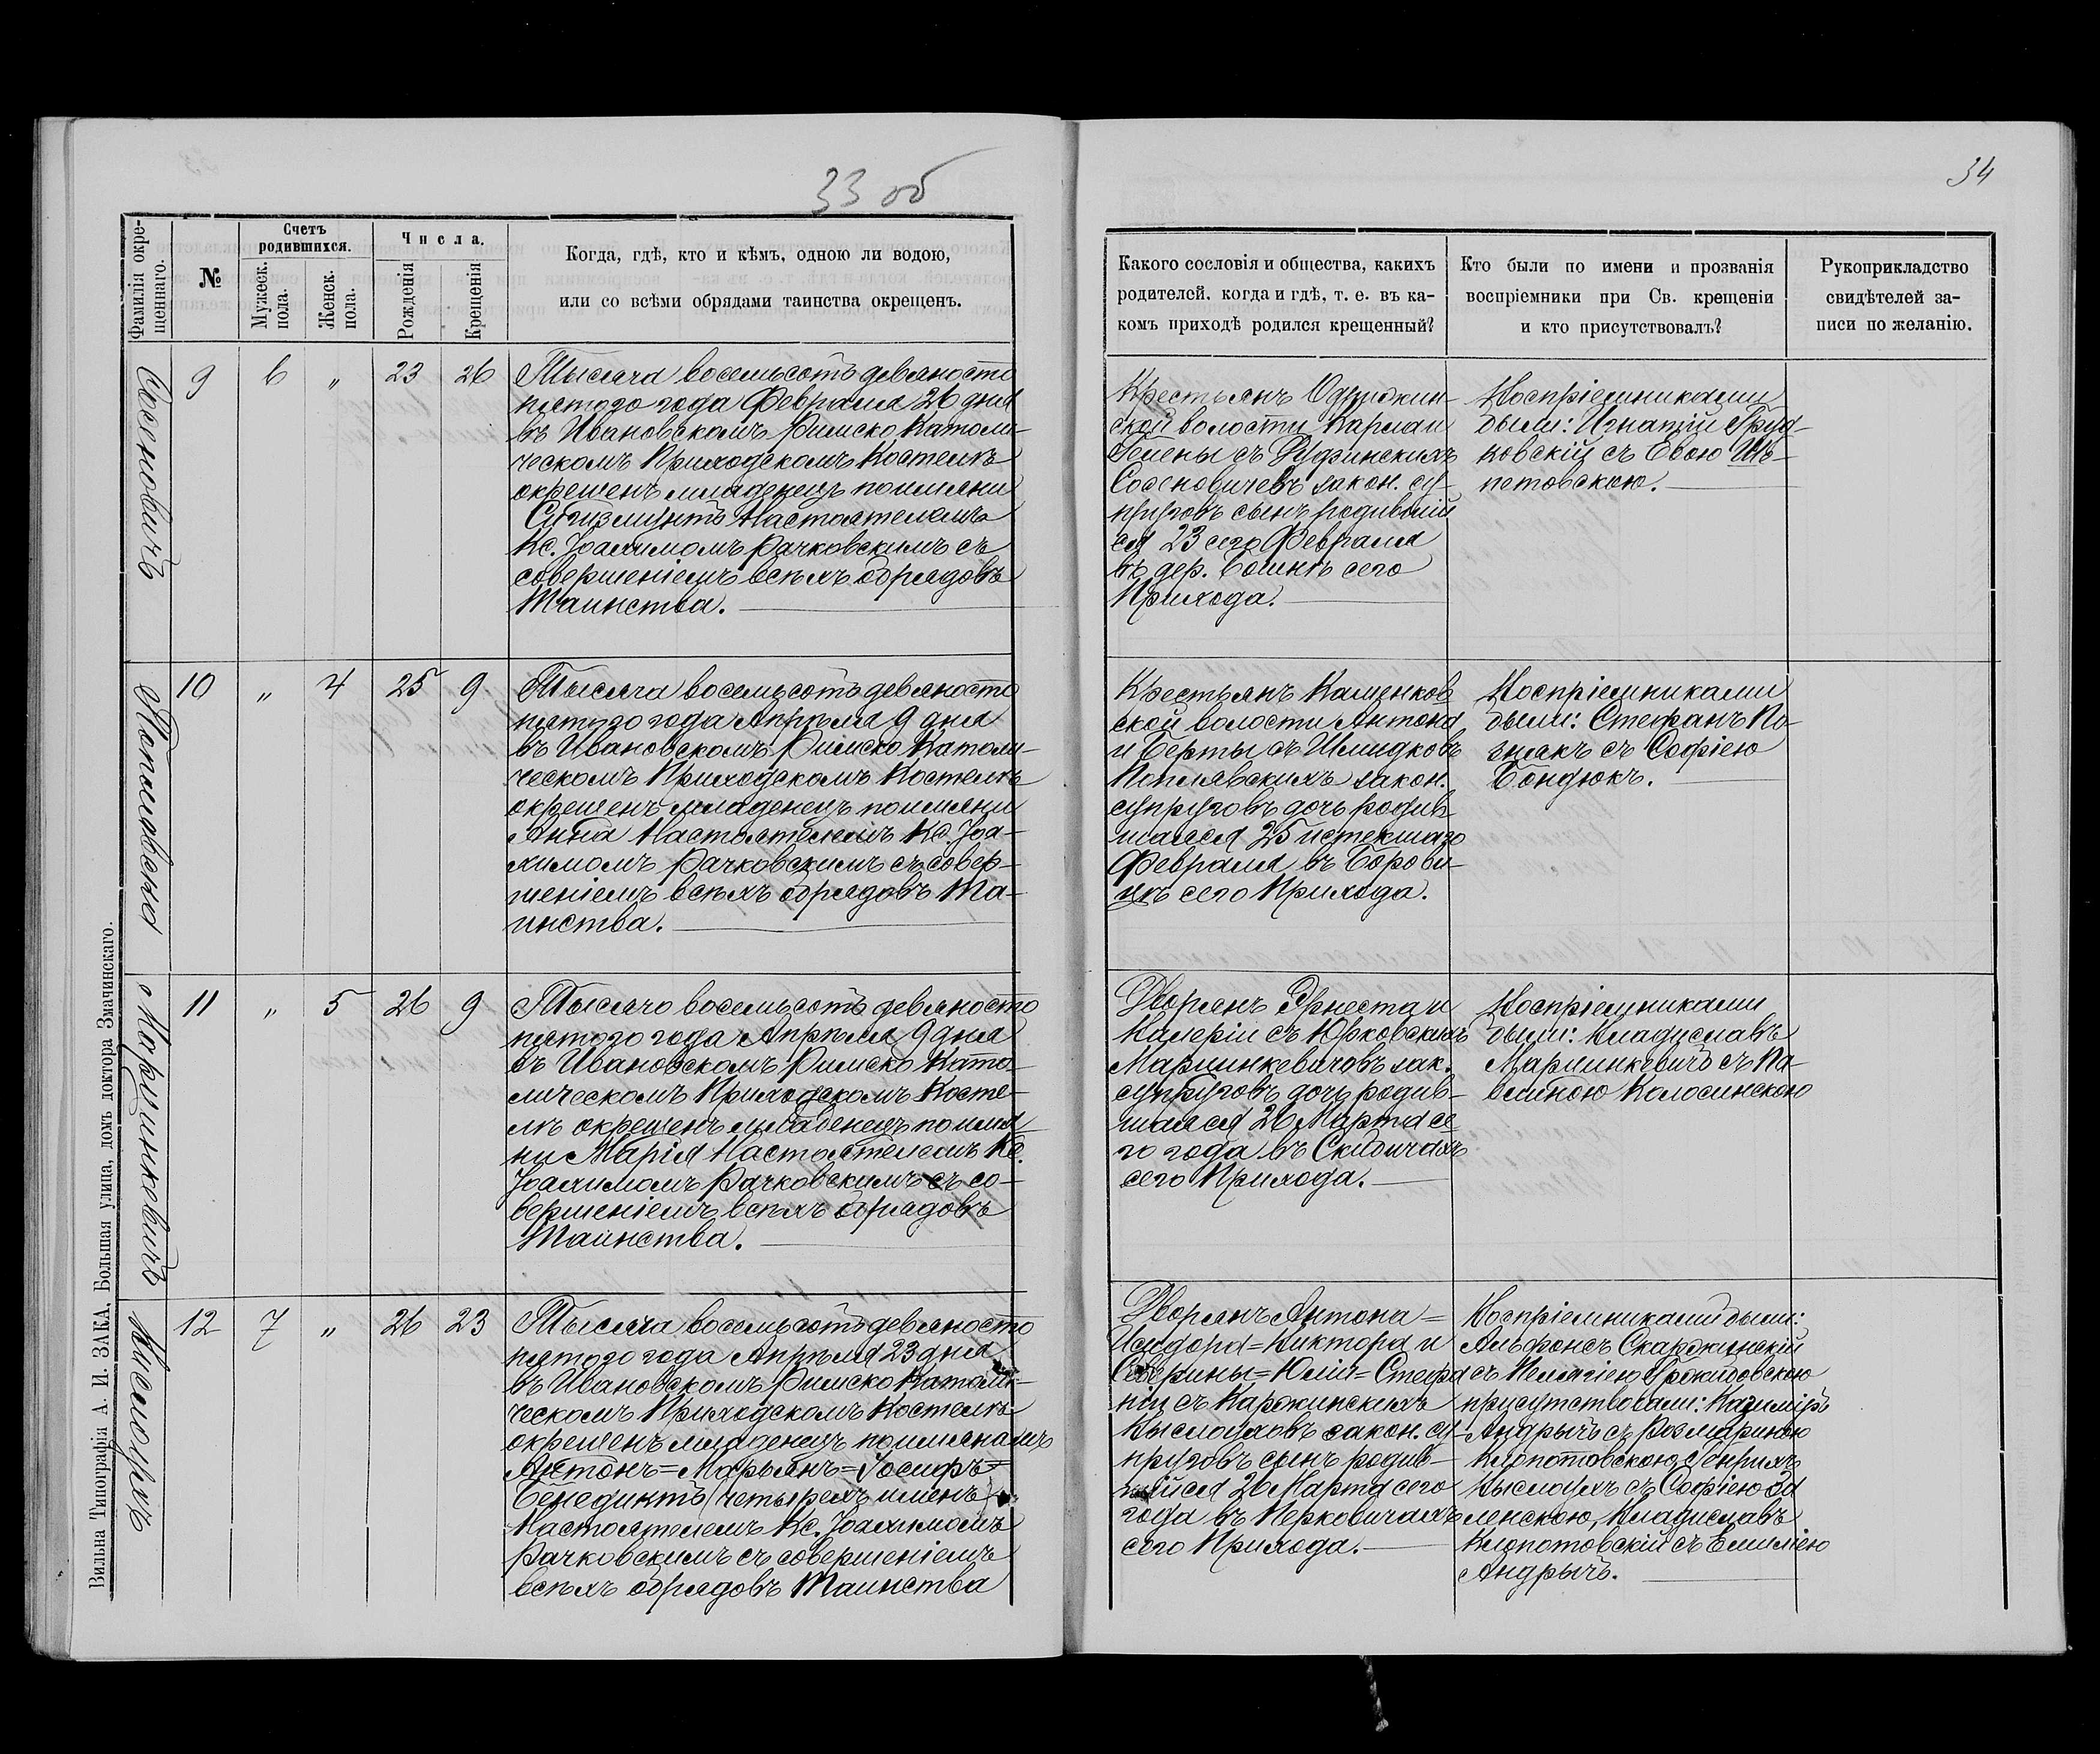 33 об
34
Фамилія окре-
щеннаго.
№
Счетъ
родившихся.
Мужеск.
пола.
Женск.
пола.
Числа.
Рожденія
Крещенія
Когда, гдѣ, кто и кѣмъ, одною ли водою,
или со всѣми обрядами таинства окрещенъ.
Какого сословія и общества, какихъ
родителей. когда и гдѣ, т. е. въ ка-
комъ приходѣ родился крещенный?
Кто были по имени и прозванія
воспріемники при Св. крещеніи
и кто присутствовалъ?
Рукоприкладство
свидѣтелей за-
писи по желанію.
Сосновичъ
9 6 „ 23 26
Тысяча восемьсотъ девяносто
пятого года Февраля 26 дня
въ Ивановскомъ Римско Католи-
ческомъ Приходскомъ Костелѣ
окрещенъ младенецъ по имени
Сигизмунтъ Настоятелемъ
Кс. Іоахимомъ Рачковскимъ съ
совершеніемъ всѣхъ обрядовъ
Таинства.
Крестьянъ
ской волости Карла и
Гелены съ Рудзинскихъ
Сосновичевъ закон. су-
пруговъ сынъ родившій
ся 23 сего Февраля
въ дер. сего
Прихода.
Воспріемниками
были: Игнатій Груд-
ковскій съ Евою Ше-
петовскою.
Поплавскою
10 „ 4 25 9
Тысяча восемьсотъ девяносто
пятого года Апрѣля 9 дня
въ Ивановскомъ Римско Католи-
ческомъ Приходскомъ Костелѣ
окрещенъ младенецъ по имени
Анна Настоятелемъ Кс. Іоа-
химомъ Рачковскимъ съ совер-
шеніемъ всѣхъ обрядовъ Та-
инства.
Крестьянъ Каменков
ской волости Антона
и Берты съ Шмидковъ
Поплавскихъ закон.
супруговъ дочь родив
шаяся 25 истекшаго
Февраля въ Борови-
цѣ сего Прихода.
Воспріемниками
были: Стефанъ По-
знакъ съ Софіею
Бондюкъ.
Марцинкевичъ
11 „ 5 26 9
Тысячо восемьсотъ девяносто
пятого года Апрѣля 9 дня
въ Ивановскомъ Римско Като-
лическомъ Приходскомъ Косте-
лѣ окрещенъ младенецъ по име
ни Марія Настоятелемъ Кс.
Іоахимомъ Рачковскимъ съ со-
вершеніемъ всѣхъ обрядовъ
Таинства.
Дворянъ Эрнеста и
Валеріи съ Юрковскихъ
Марцинкевичовъ зак.
супруговъ дочь родив-
шаяся 26 Марта се
го года въ Скибичахъ
сего Прихода.
Воспріемниками
были: Владиславъ
Марцинкевичъ съ Па-
влиною Колосинскою
Выслоухъ
12 7 „ 26 23
Тысяча восемьсотъ девяносто
пятого года Апрѣля 23 дня
въ Ивановскомъ Римско Католи-
ческомъ Приходскомъ Костелѣ
окрещенъ младенецъ по именамъ
Антонъ=Марьянъ=Іосифъ=
Бенедиктъ (четырехъ именъ)
Настоятелемъ Кс. Іоахимомъ
Рачковскимъ съ совершеніемъ
всѣхъ обрядовъ Таинства
Дворянъ Антона=
Исидора=Виктора и
Северины=Юліи=Стефа
ніи съ Наржимскихъ
Выслоуховъ закон. су-
пруговъ сынъ родив-
шійся 26 Марта сего
года въ Перковичахъ
сего Прихода.
Воспріемниками были:
Альфонсъ Скаржинскій
съ Пелагіею
присутствовали: Казимиръ
Андрычъ съ Розмариною
Клопотовскою, Генрихъ
Выслоухъ съ Софіею За
ленскою, Владиславъ
Клопотовскій съ Емиліею
Андрычъ.
Вильна Типографія А. И. ЗАКА, Большая улица, домъ доктора Змачинскаго.